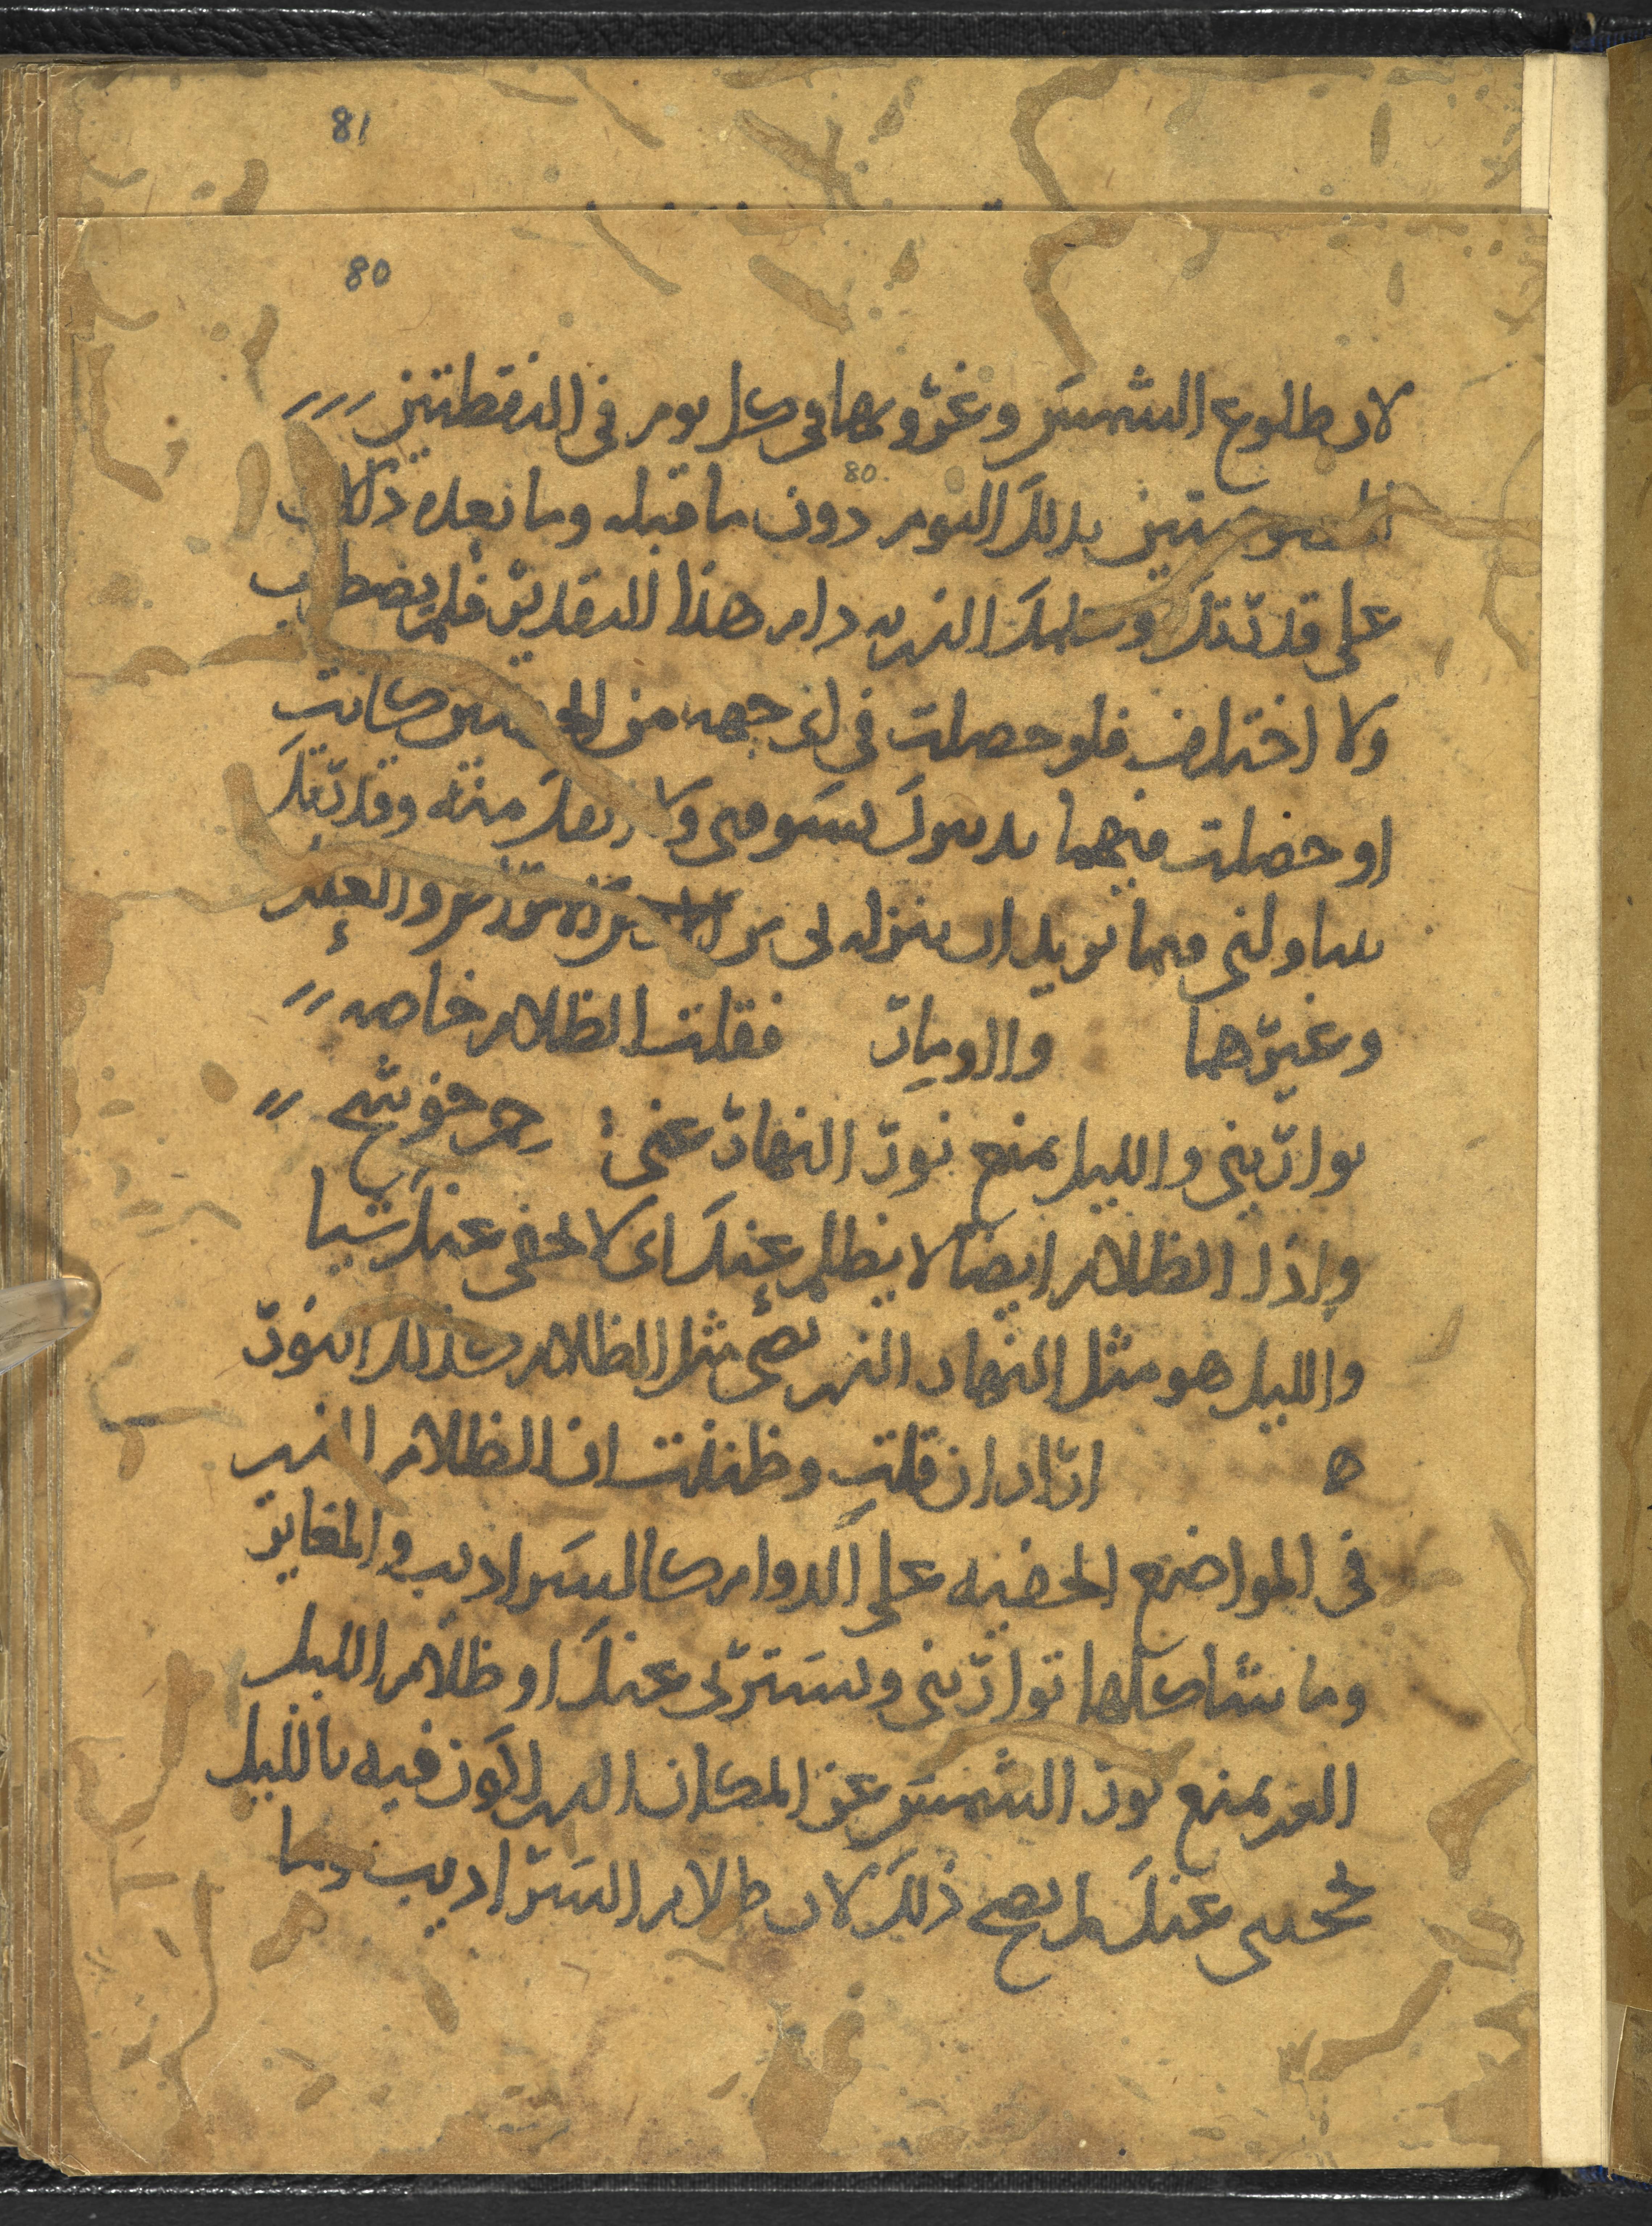 81
80
لان طلوع الشمس وغروبها في كل يوم في النقطتين
80
بذلك اليوم دون ما قبله وما بعده دلالة
على قدرتك وسلطانك الذي به دام هذا التقدير فلم يضطرب
ولا اختلف فلو حصلت في اي جهه من الجهتين كانت
او حصلت فيهما يدبيرك يسومني ولا منه وقدرتك
تناولني فيما تريد ان تنزله بي من والعبد
وغيرهما والاويار فقلت الظلام خاصه
يوارىني والليل يمنع نور النهار عني
واذا الظلام ايضا لا يظلم عندك اي لا يخفي عنك شيا
والليل هو مثل النهار الذي يضي مثل الظلام كذلك النور
ه اراد ان قلت وظننت ان الظلام الذي
في المواضع الخفيه على الدوام كالسراديب والمغاير
وما شاكلها تواريني وتسترني عنك او ظلام الليل
الذي يمنع نور الشمس عن المكان الذي اكون فيه بالليل
يخفيني عنك لم يصح ذلك لان ظلام السراديب وما